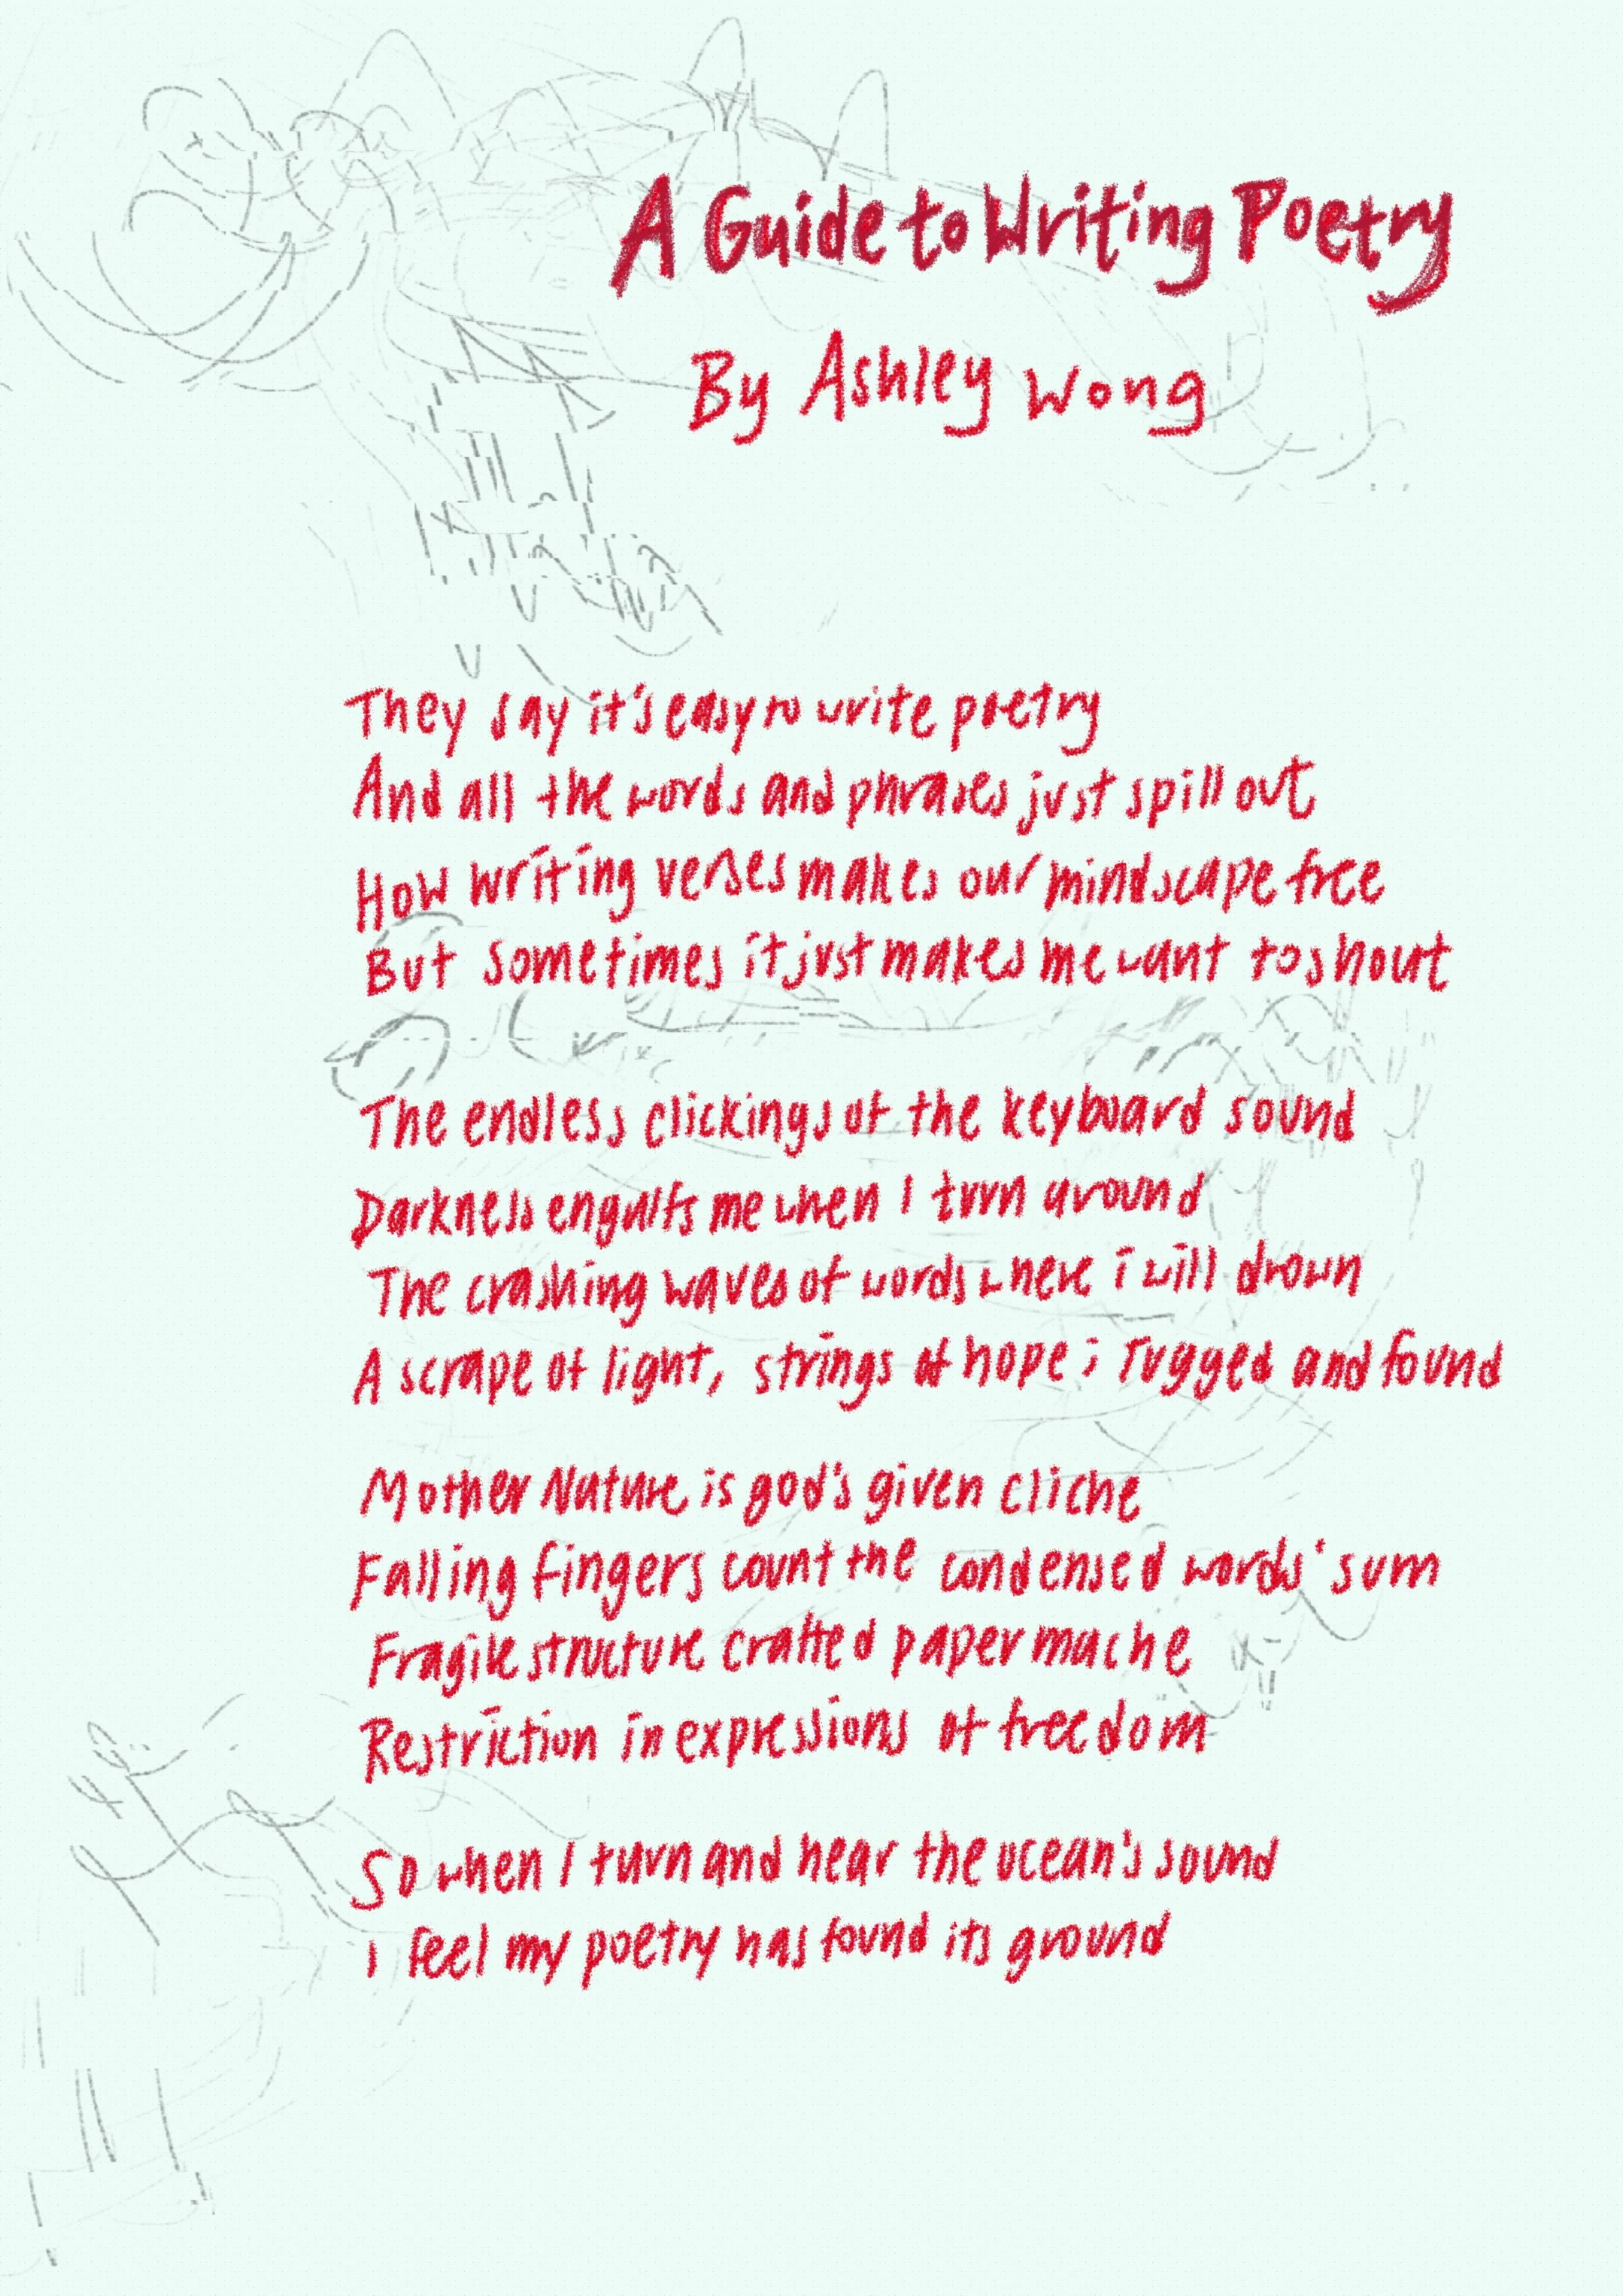 A Guide to Writing Poetry
By Ashley Wong
They say it's easy to write poetry
And all the words and phrases just spill out
How writing verses makes our mindscape free
But sometimes it just makes me want to shout
The endless clickings of the keyboard sound
Darkness engulfs me when I turn around
The crashing waves of words where i will drown
A scrape of light, strings of hope; Tugged and found
Mother Nature is god's given cliche
Falling fingers count the condensed words' sum
Fragile structure crafted paper mache
Restriction in expressions of freedom
So when I turn and hear the ocean's sound
I feel my poetry has found its ground